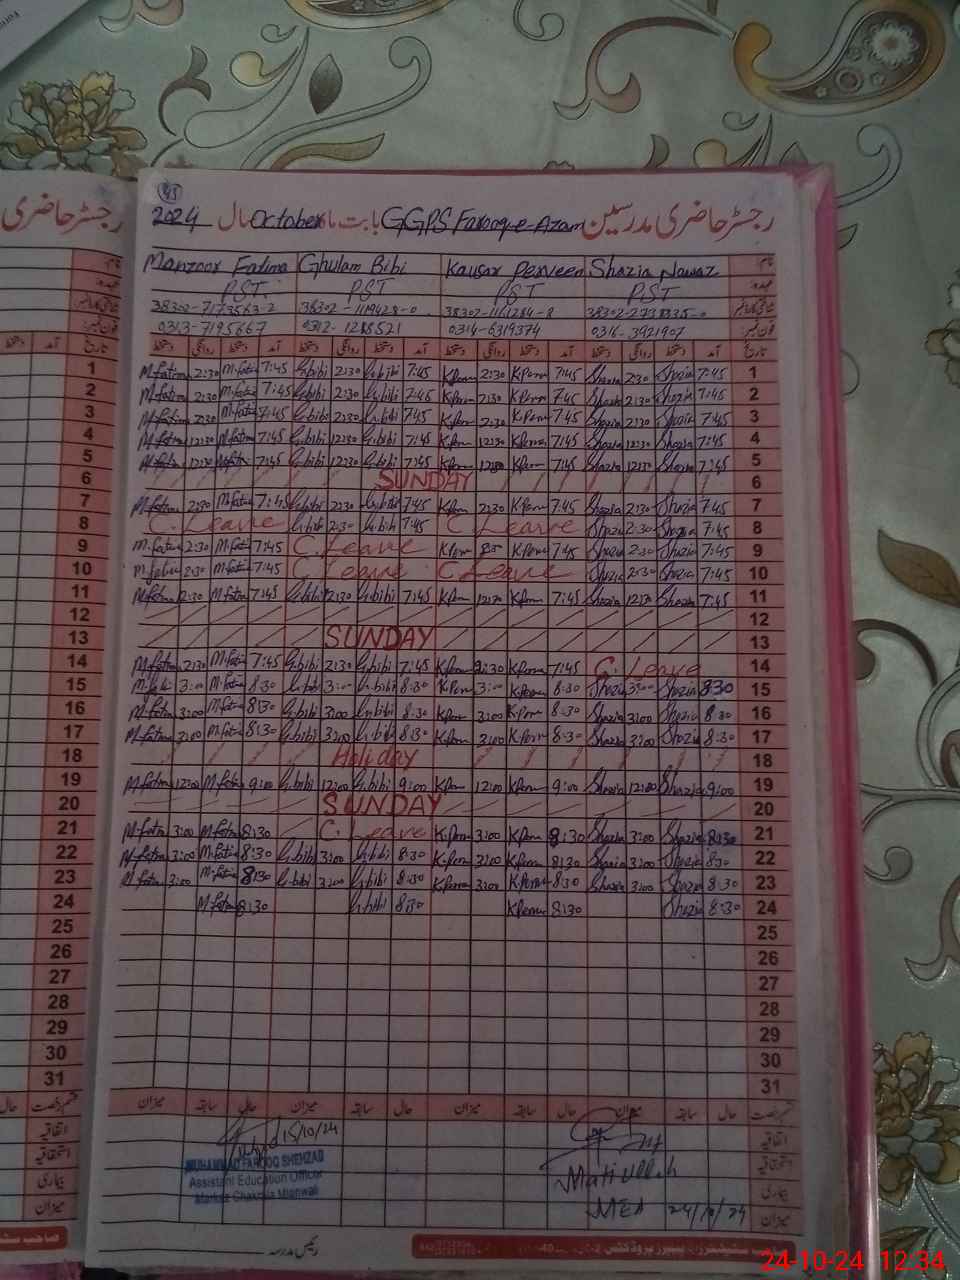 45
رجسٹر حاضری مدرسین GGPS Farooq-e-Azam بابت ماہ October سال 2024
رجسٹر حاضری
نام: Manzoor Fatima Ghulam Bibi Kausar Perveen Shazia Nawaz
عہدہ: PST PST PST PST
38302-7173563-2 38302-1119428-0 38302-1161284-8
فون نمبر: 0313-7195667 0314-6319374 0316-3921907
تاریخ آمد دستخط روانگی دستخط آمد دستخط روانگی دستخط آمد دستخط روانگی دستخط آمد دستخط روانگی دستخط تاریخ
1 M.fatima 2:30 M.fatima 7:45 G.bibi 2:30 G.bibi 7:45 K.Perv 2:30 K.Perv 7:45 Shazia 2:30 Shazia 7:45 1
2 M.fatima 2:30 M.fatima 7:45 G.bibi 2:30 G.bibi 7:45 K.Perv 2:30 K.Perv 7:45 Shazia 2:30 Shazia 7:45 2
3 M.fatima 2:30 M.fatima 7:45 G.bibi 2:30 G.bibi 7:45 K.Perv 2:30 K.Perv 7:45 Shazia 2:30 Shazia 7:45 3
4 M.fatima 12:30 M.fatima 7:45 G.bibi 12:30 G.bibi 7:45 K.Perv 12:30 K.Perv 7:45 Shazia 12:30 Shazia 7:45 4
5 M.fatima 12:30 M.fatima 7:45 G.bibi 12:30 G.bibi 7:45 K.Perv 12:30 K.Perv 7:45 Shazia 12:30 Shazia 7:45 5
6 SUNDAY 6
7 M.fatima 2:30 M.fatima 7:45 G.bibi 2:30 G.bibi 7:45 K.Perv 2:30 K.Perv 7:45 Shazia 2:30 Shazia 7:45 7
8 C. Leave G.bibi 2:30 G.bibi 7:45 C Leave Shazia 2:30 Shazia 7:45 8
9 M.fatima 2:30 M.fatima 7:45 C. Leave K.Perv K.Perv 7:45 Shazia 2:30 Shazia 7:45 9
10 M.fatima 2:30 M.fatima 7:45 C. Leave C Leave Shazia 2:30 Shazia 7:45 10
11 M.fatima 2:30 M.fatima 7:45 G.bibi 12:30 G.bibi 7:45 K.Perv 12:30 K.Perv 7:45 Shazia 12:30 Shazia 7:45 11
12 12
13 SUNDAY 13
14 M.fatima 2:30 M.fatima 7:45 G.bibi 2:30 G.bibi 7:45 K.Perv 2:30 K.Perv 7:45 C. Leave 14
15 M.fatima 3:00 M.fatima 8:30 G.bibi 3:00 G.bibi 8:30 K.Perv 3:00 K.Perv 8:30 Shazia 3:00 Shazia 8:30 15
16 M.fatima 3:00 M.fatima 8:30 G.bibi 3:00 G.bibi 8:30 K.Perv 3:00 K.Perv 8:30 Shazia 3:00 Shazia 8:30 16
17 M.fatima 3:00 M.fatima 8:30 G.bibi 3:00 G.bibi 8:30 K.Perv 3:00 K.Perv 8:30 Shazia 3:00 Shazia 8:30 17
18 Holiday 18
19 M.fatima 12:00 M.fatima 9:00 G.bibi 12:00 G.bibi 9:00 K.Perv 12:00 K.Perv 9:00 Shazia 12:00 Shazia 9:00 19
20 SUNDAY 20
21 M.fatima 3:00 M.fatima 8:30 C. Leave K.Perv 3:00 K.Perv 8:30 Shazia 3:00 Shazia 8:30 21
22 M.fatima 3:00 M.fatima 8:30 G.bibi 3:00 G.bibi 8:30 K.Perv 3:00 K.Perv 8:30 Shazia 3:00 Shazia 8:30 22
23 M.fatima 3:00 M.fatima 8:30 G.bibi 3:00 G.bibi 8:30 K.Perv 3:00 K.Perv 8:30 Shazia 3:00 Shazia 8:30 23
24 M.fatima 8:30 G.bibi 8:30 K.Perv 8:30 Shazia 8:30 24
25 25
26 26
27 27
28 28
29 29
30 30
31 31
قسم رخصت حال سابقہ میزان حال سابقہ میزان حال سابقہ میزان حال سابقہ میزان قسم رخصت حال
اتفاقیہ اتفاقیہ
استحقاقیہ استحقاقیہ
بیماری بیماری
میزان میزان
15/10/24
MUHAMMAD FAROOQ SHEHZAD
Assistant Education Officer
Markaz Chakrala Mianwali
Mati ullah
MEA 24/10/24
رئیس مدرسہ
24-10-24 12:34